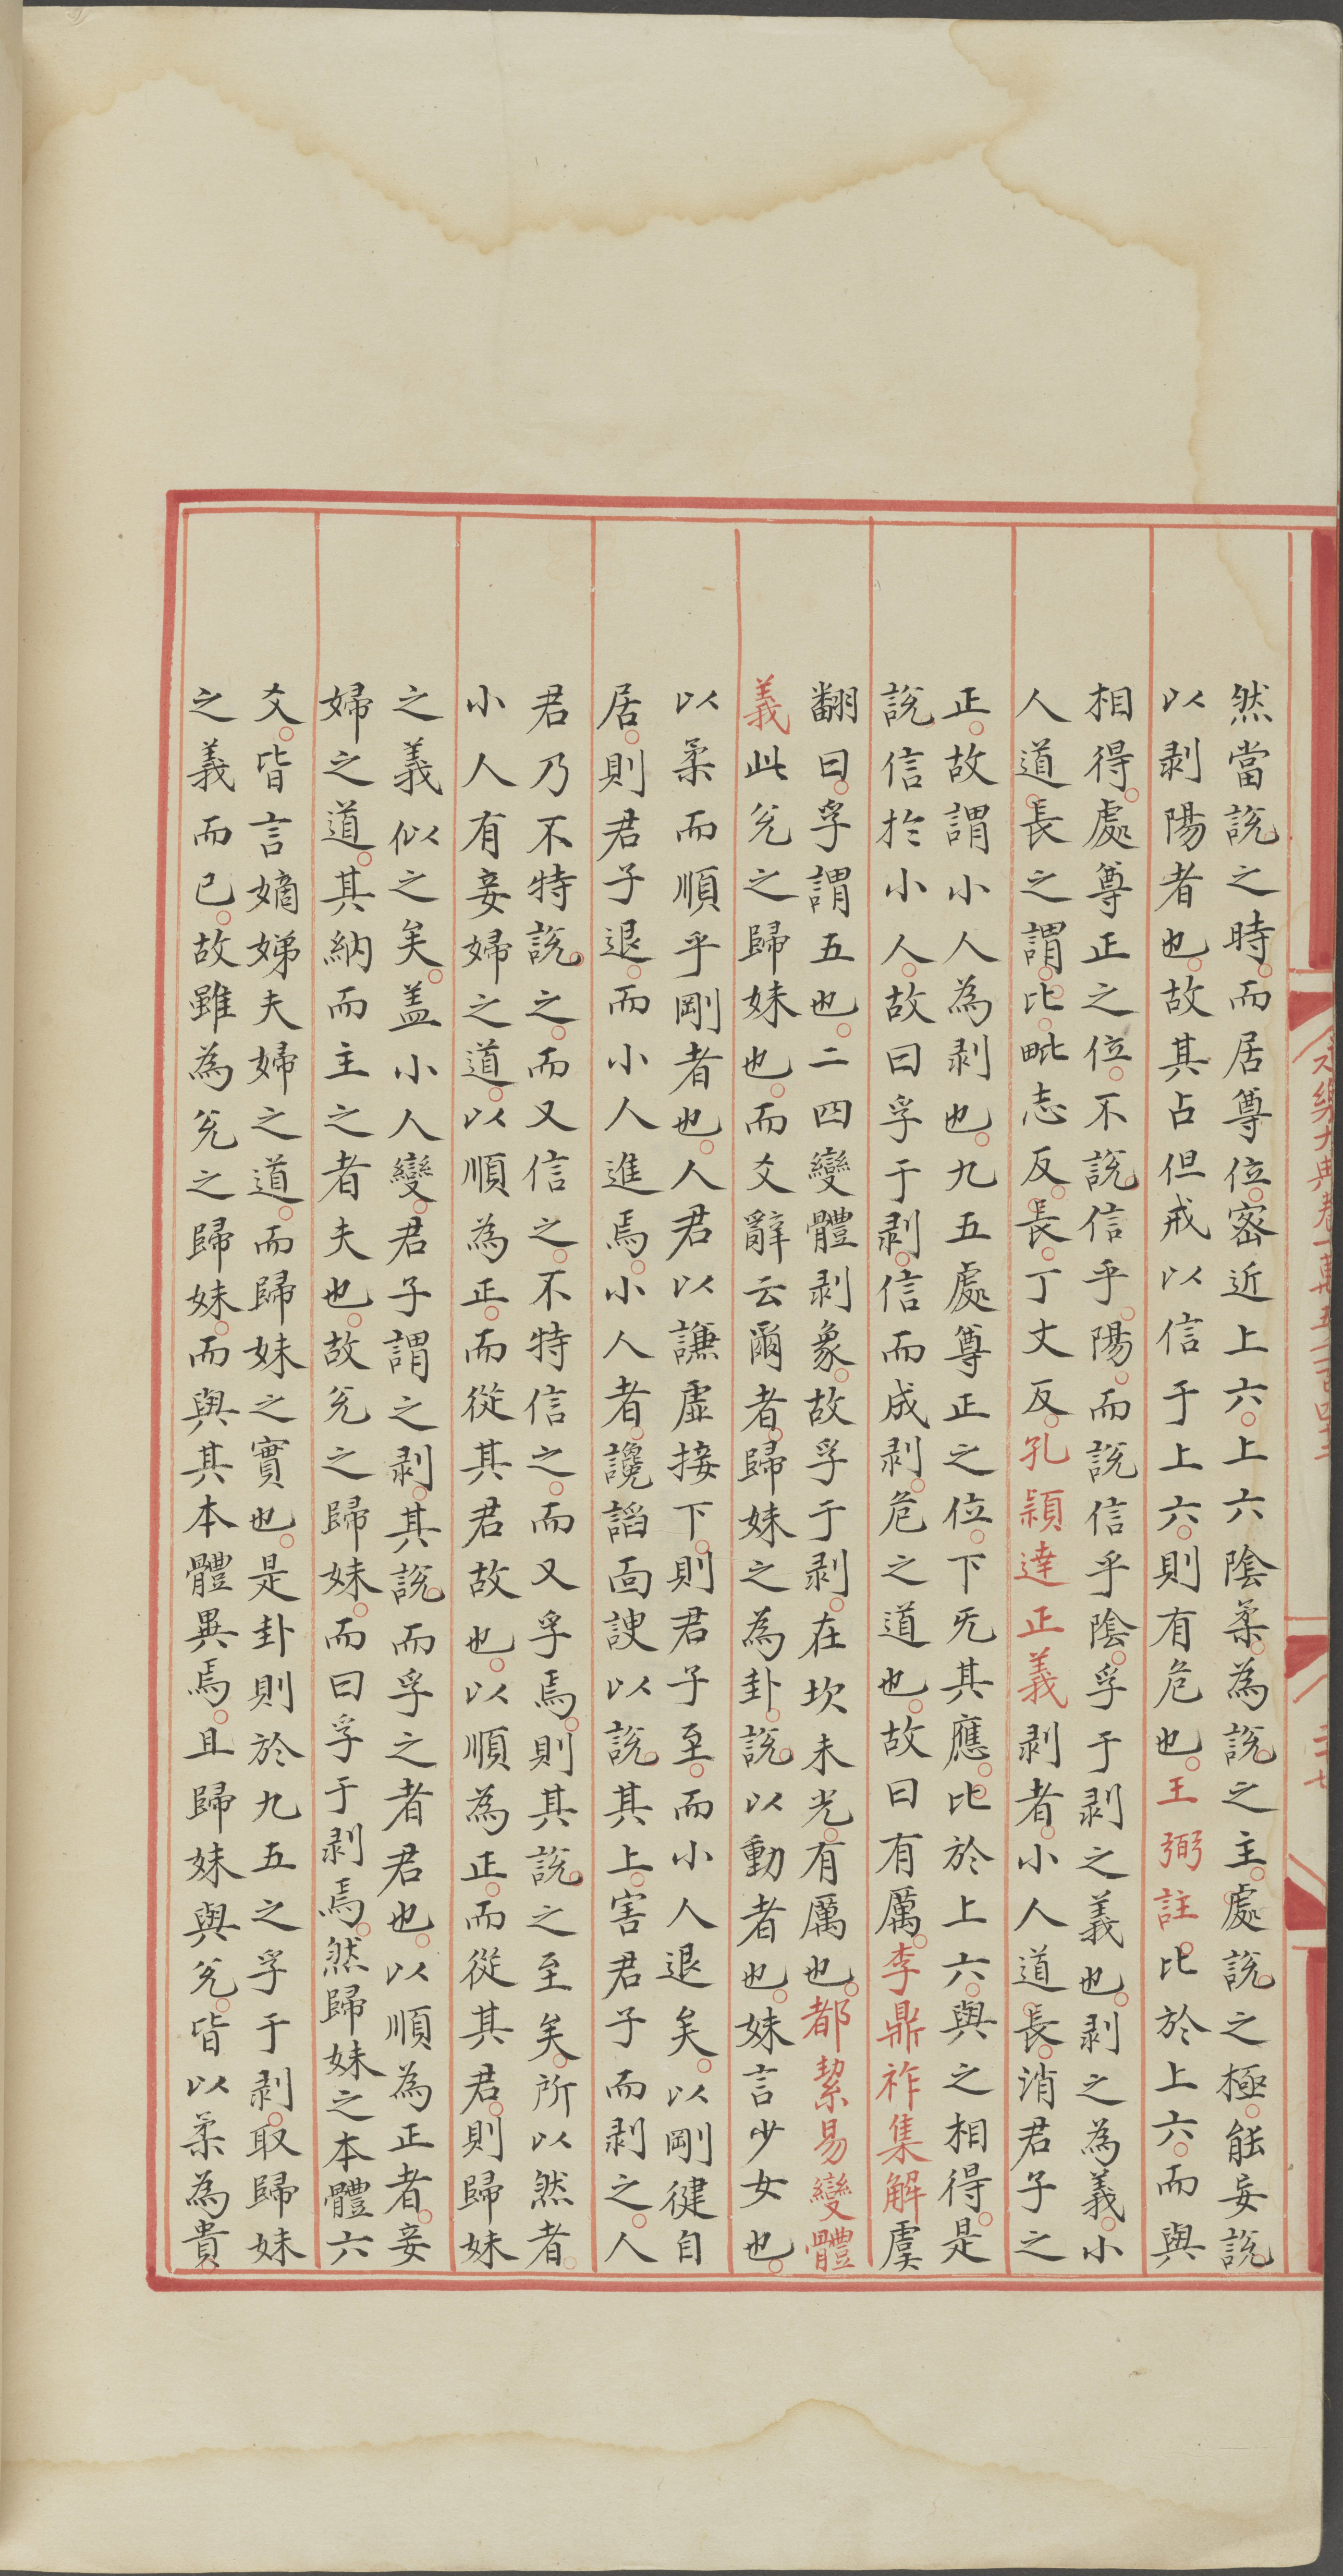 然當說之時而居尊位密近上六上六陰柔為說之主處說之極能妄說
以剥陽者也故其占但戒以信于上六則有危也王弼註比於上六而與
相得處尊正之位不說信乎陽而說信乎陰孚于剥之義也剥之為義小
人道長之謂比毗志反長丁丈反孔穎達正義剥者小人道長消君子之
正故謂小人為剥也九五處尊正之位下旡其應比於上六與之相得是
說信於小人故曰孚于剥信而成剥危之道也故曰有厲李鼎祚集解虞
翻曰孚謂五也二四變體剥象故孚于剥在坎未光有厲也都絜易變體
義此兊之歸妹也而爻辭云爾者歸妹之為卦說以動者也妹言少女也
以柔而順乎剛者也人君以謙虛接下則君子至而小人退矣以剛健自
居則君子退而小人進焉小人者讒謟面諛以說其上害君子而剥之人
君乃不特說之而又信之不特信之而又孚焉則其說之至矣所以然者
小人有妾婦之道以順為正而從其君故也以順為正而從其君則歸妹
之義似之矣盖小人變君子謂之剥其說而孚之者君也以順為正者妾
婦之道其納而主之者夫也故兊之歸妹而曰孚于剥焉然歸妹之本體六
爻皆言嫡娣夫婦之道而歸妹之實也是卦則於九五之孚于剥取歸妹
之義而已故雖為兊之歸妹而與其本體異焉且歸妹與兊皆以柔為貴
永樂大典卷一萬五千一百四十二
二十七